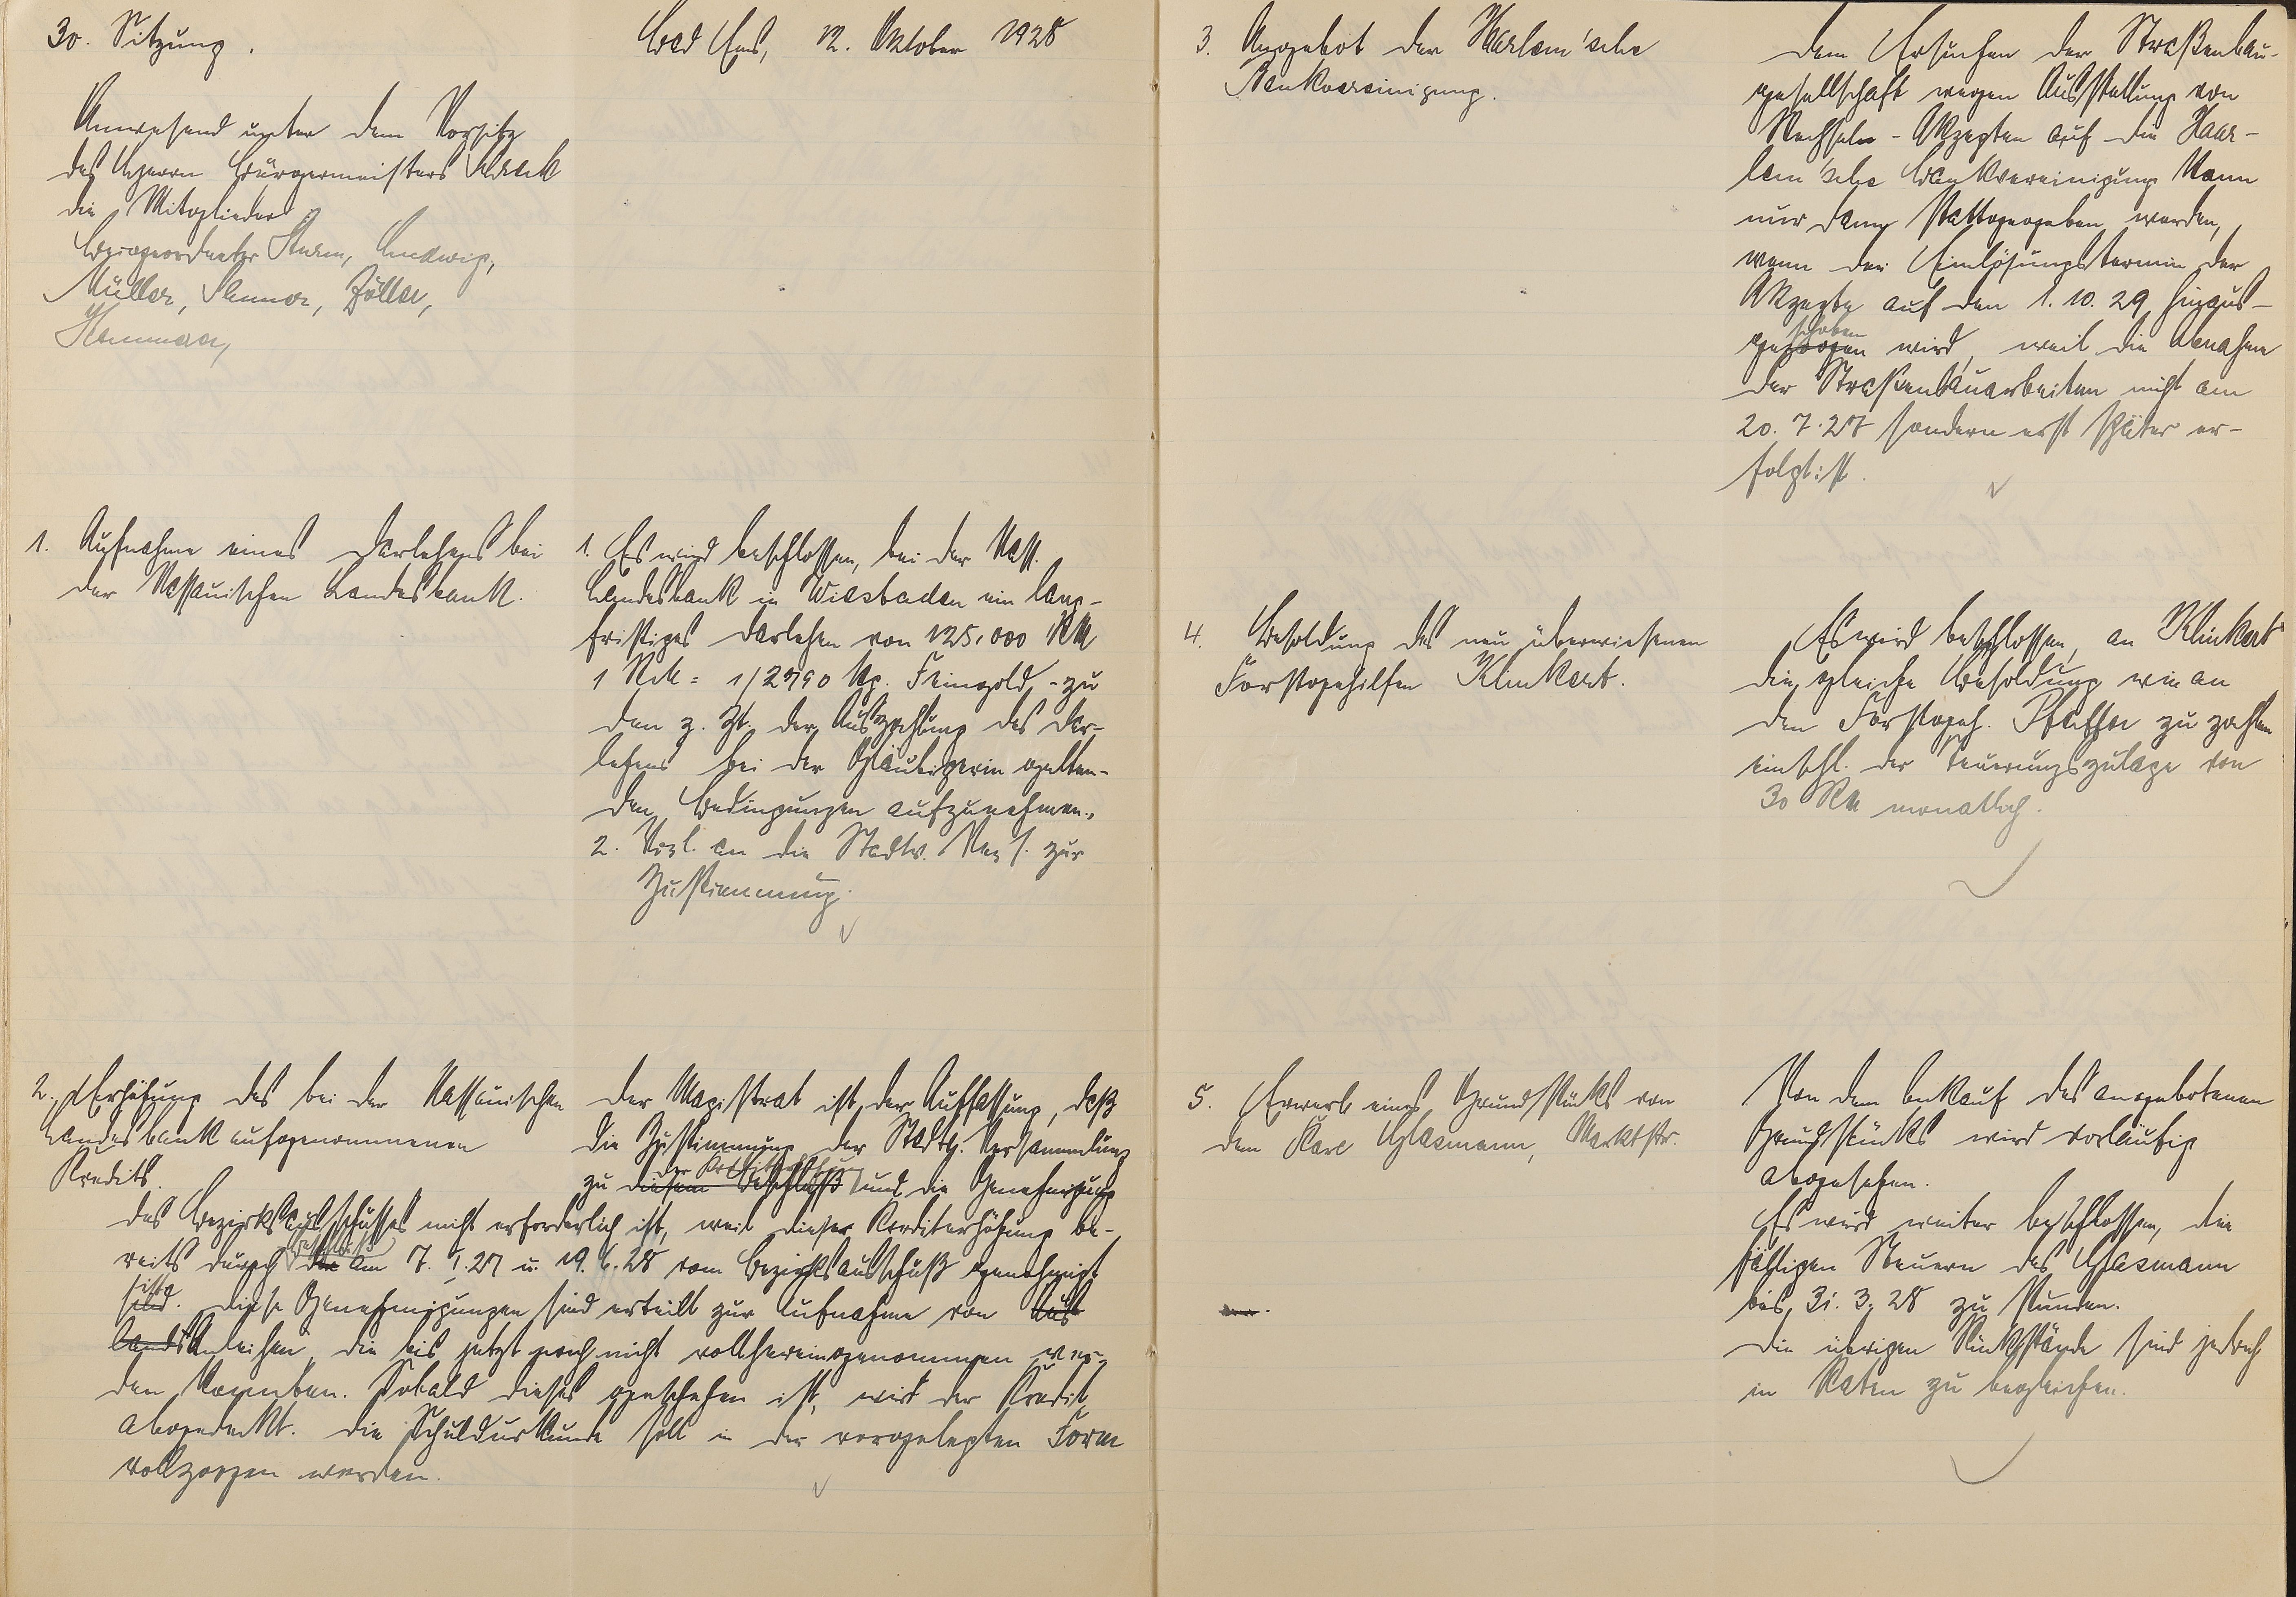 30. Sitzung.
Bad Ems, 12. Oktober 1928
Anwesend unter dem Vorsitz
des Herrn Bürgermeisters
die Mitglieder:
Beigeordneter Sturm, Ludwig,
Müller, Zöller,
1. Aufnahme eines Darlehens bei
der Nassauischen Landesbank.
1. Es wird beschlossen, bei der Nass.
Landesbank in Wiesbaden ein lang-
fristiges Darlehen von 125.000 RM
1 RM = 1/2790 kg. Feingold - zu
den z. Zt. der Auszahlung des Dar-
lehens bei der Gläubigerin gelten-
den Bedingungen aufzunehmen.
2. Vorl. an die Stadtv. Vers. zur
Zustimmung.
2. Erhöhung des bei der Nassauischen
Landesbank aufgenommenen
Kredits.
Der Magistrat ist der Auffassung, daß
die Zustimmung der Stadtv. Versammlung
der Krediterhöhung
zu diesem Beschluß und die Genehmigung
des Bezirksausschusses nicht erforderlich ist, weil dieser Krediterhöhung be-
Beschluß
reits durch die am 7. 1. 27 u. 19. 6. 28 vom Bezirksausschuß genehmigt
ist.
sind. Diese Genehmigungen sind erteilt zur Aufnahme von Aus
lands Anleihen, die bis jetzt noch nicht voll hereingenommen wer-
den konnten. Sobald dieses geschehen ist, wird der Kredit
abgedeckt. Die Schuldurkunde soll in der vorgelegten Form
vollzogen werden.
3. Angebot der Harlem'sche
Bankvereinigung.
Dem Ersuchen der Straßenbau-
gesellschaft wegen Ausstellung von
Wechseln - Akzepten auf die Haar-
lem'sche Bankvereinigung kann
nur dann stattgegeben werden,
wenn der Einlösungstermin der
Akzepte auf den 1. 10. 29 hinaus-
schoben
gezogen wird, weil die Abnahme
der Straßenbauarbeiten nicht am
20. 7. 27 sondern erst später er-
folgt ist.
4. Besoldung des neu überwiesenen
Forstgehilfen Klinkert.
Es wird beschlossen, an Klinkert
die gleiche Besoldung wie an
den Forstgeh. Pfeiffer zu zahlen
einschl. der Teuerungszulage von
30 RM monatlich.
5. Erwerb eines Grundstücks von
dem Karl Glasmann, Marktstr.
Von dem Ankauf des angebotenen
Grundstücks wird vorläufig
abgesehen.
Es wird weiter beschlossen, die
fälligen Steuern des Glasmann
bis 31. 3. 28 zu stunden.
Die übrigen Rückstände sind jedoch
in Raten zu begleichen.